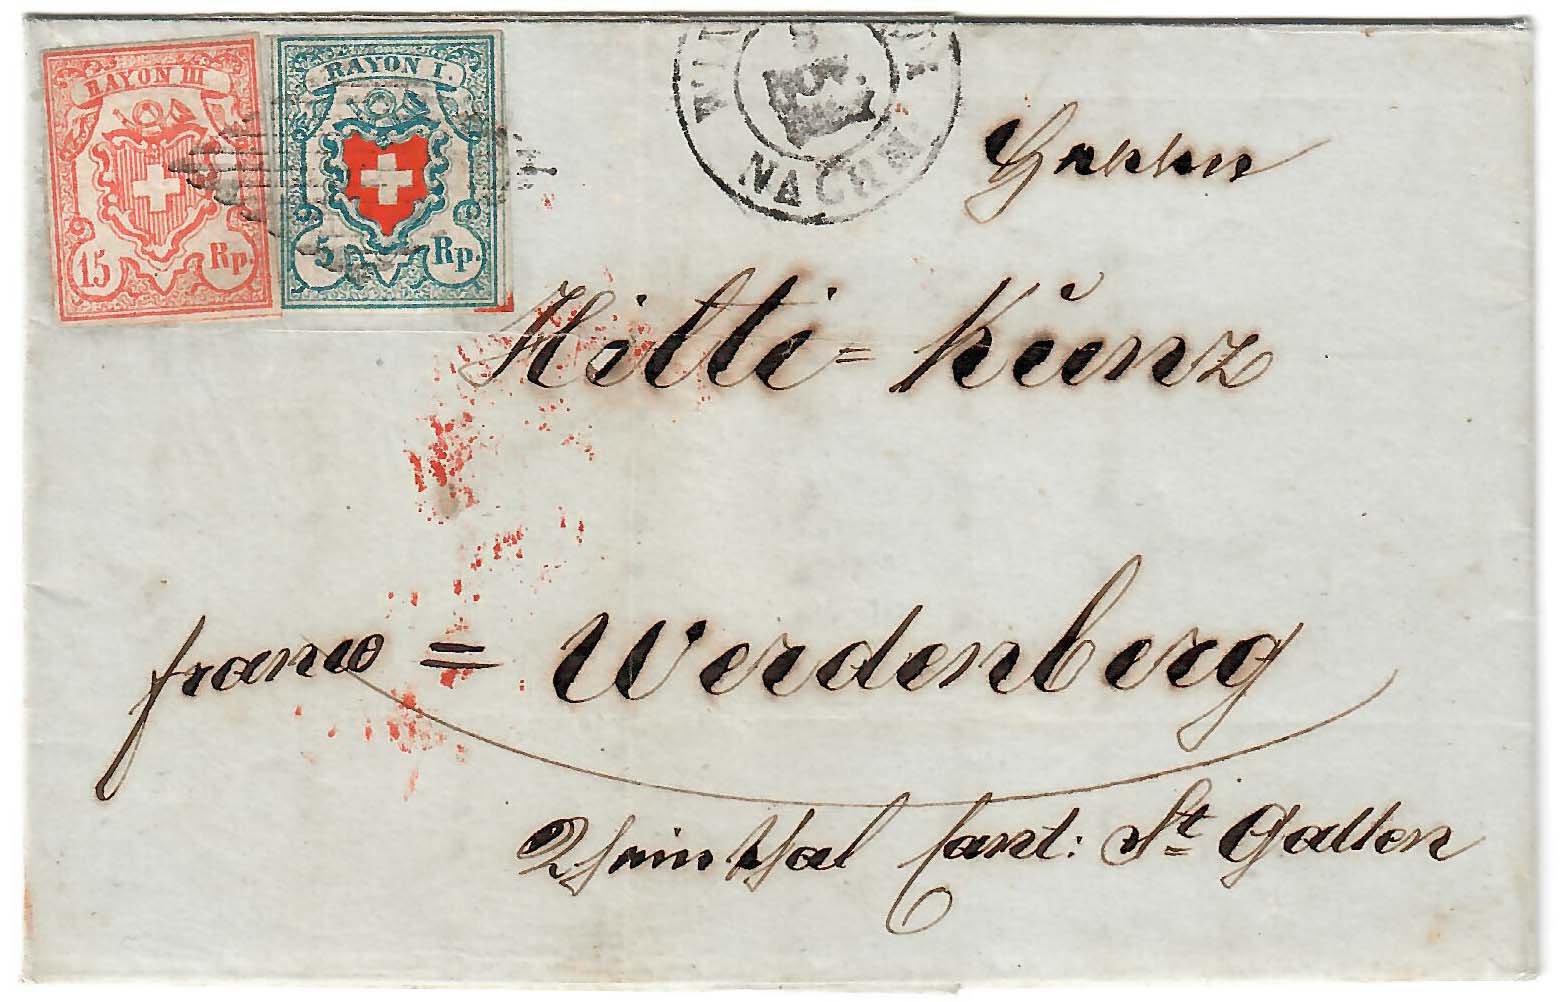 RAYON III
15 Rp.
RAYON I.
5 Rp.
NOV.
NACHM
Hilti = Kŭnz
franco = Werdenberg
Rheinthal Cant: St Gallen